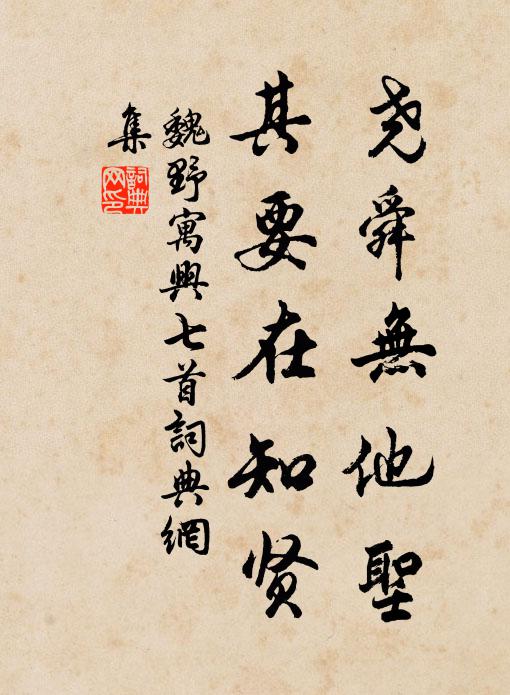 尧舜無他聖
其要在知贤
魏野寓興七首詞典網
集
詞典
网印